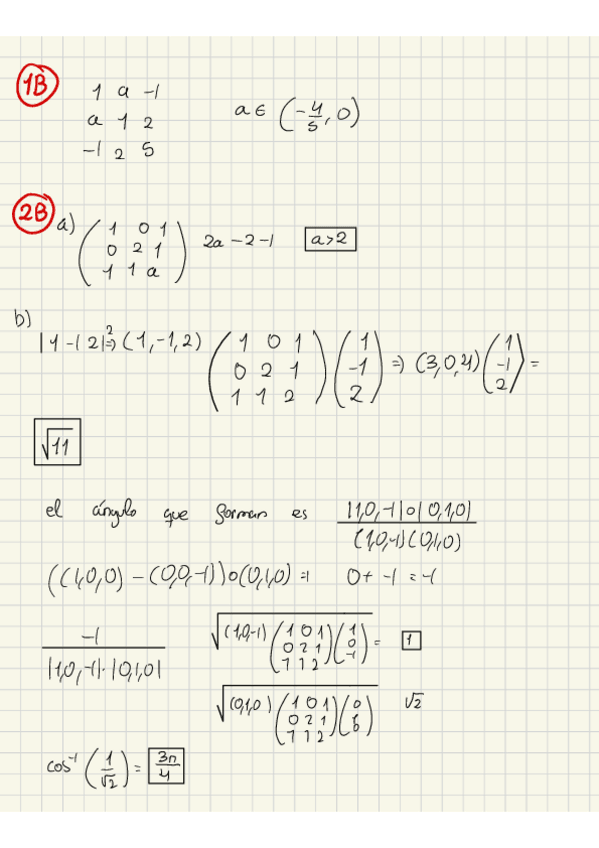 1B
1 a -1
a 1 2
-1 2 5
a ∈ (-4/5, 0)
2B
a) (1 0 1
0 2 1
1 1 a) 2a - 2 - 1 a > 2
b)
|1 -1 2|² => (1, -1, 2) (1 0 1
0 2 1
1 1 2) (1
-1
2) => (3, 0, 4) (1
-1
2) =
√11
el ángulo que forman es |1,0,-1| o |0,1,0| / (1,0,-1)(0,1,0)
((1,0,0) - (0,0,-1)) o (0,1,0) = 0 + -1 = -1
-1 / |1,0,-1| · |0,1,0|
√(1,0,-1) (1 0 1
0 2 1
1 1 2) (1
0
-1) = 1
√(0,1,0) (1 0 1
0 2 1
1 1 2) (0
1
0) √2
cos⁻¹ (1/√2) = 3π/4